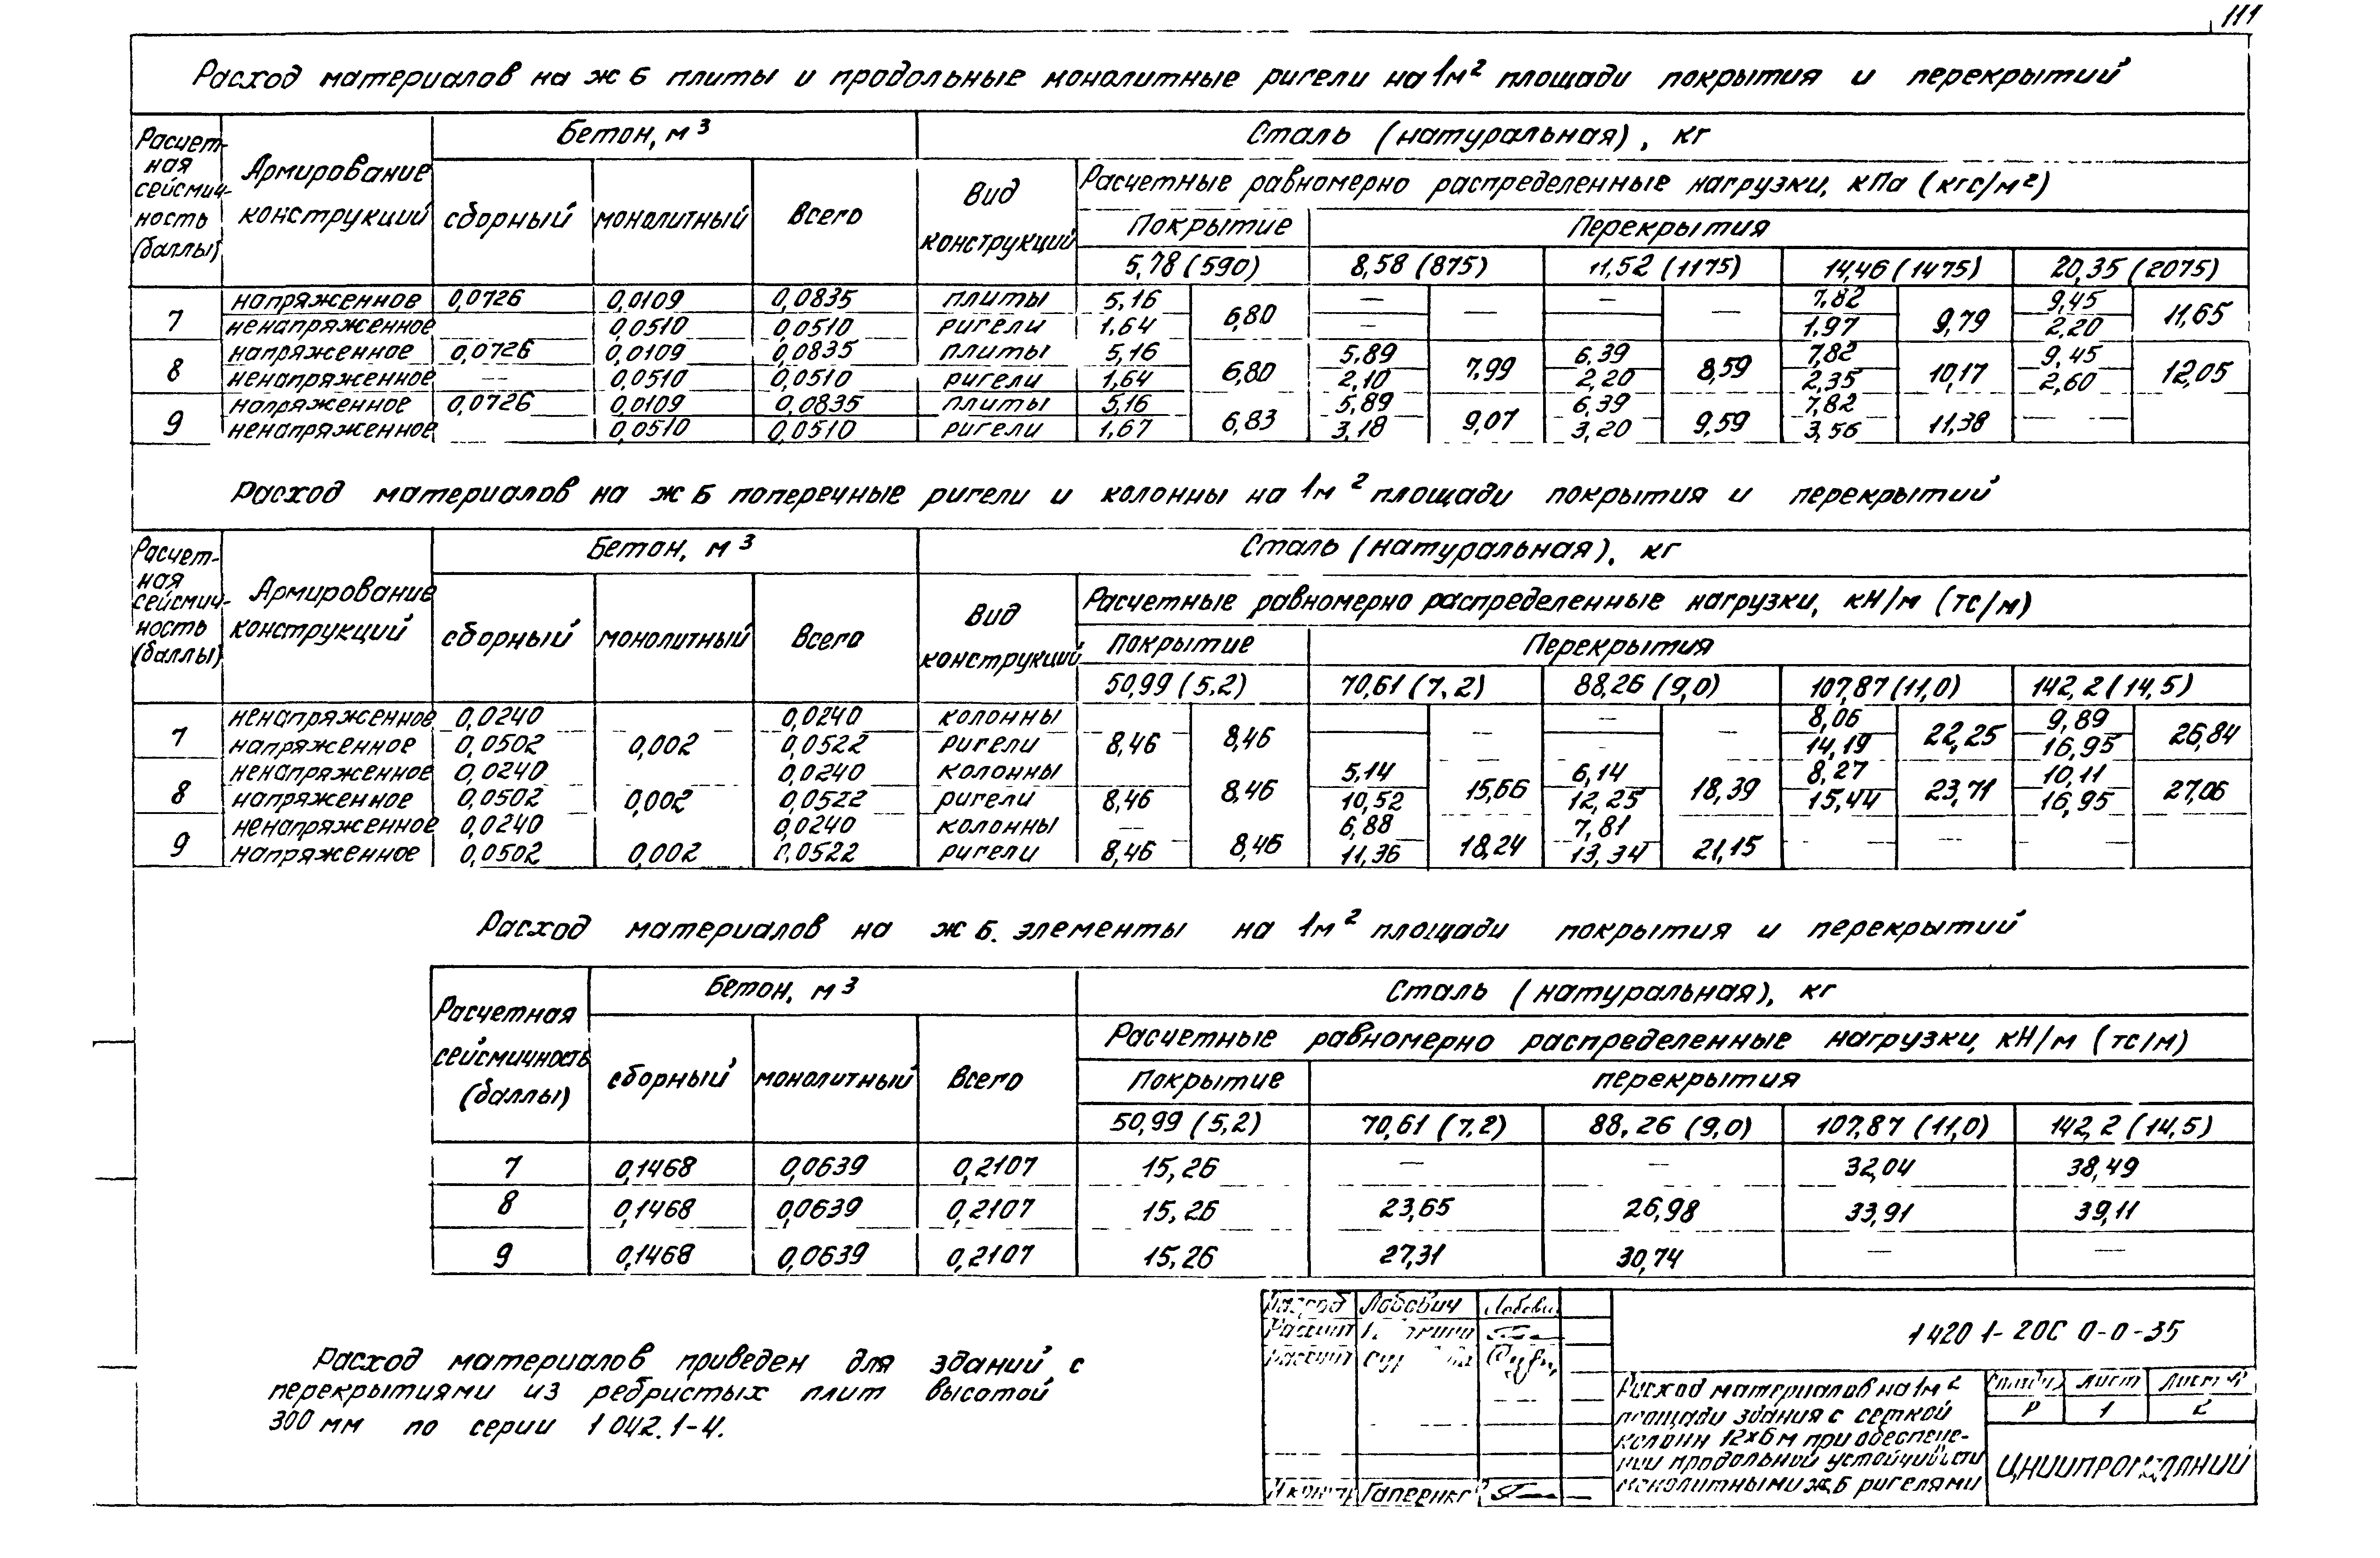 111
Расход материалов на ж б плиты и продольные монолитные ригели на 1м² площади покрытия и перекрытий
Расчет-ная сейсмич-ность (баллы) Армирование конструкций Бетон, м³ Сталь (натуральная), кг
сборный монолитный Всего Вид конструкций Расчетные равномерно распределенные нагрузки, кПа (кгс/м²)
Покрытие Перекрытия
5,78 (590) 8,58 (875) 11,52 (1175) 14,46 (1475) 20,35 (2075)
7 напряженное 0,0726 0,0109 0,0835 плиты 5,16 6,80 — — — — 7,82 9,79 9,45 11,65
ненапряженное 0,0510 0,0510 ригели 1,64 — 1,97 2,20
8 напряженное 0,0726 0,0109 0,0835 плиты 5,16 6,80 5,89 7,99 6,39 8,59 7,82 10,17 9,45 12,05
ненапряженное — 0,0510 0,0510 ригели 1,64 2,10 2,20 2,35 2,60
9 напряженное 0,0726 0,0109 0,0835 плиты 5,16 6,83 5,89 9,07 6,39 9,59 7,82 11,38 — —
ненапряженное 0,0510 0,0510 ригели 1,67 3,18 3,20 3,56
Расход материалов на ж б поперечные ригели и колонны на 1м² площади покрытия и перекрытий
Расчет-ная сейсмич-ность (баллы) Армирование конструкций Бетон, м³ Сталь (натуральная), кг
сборный монолитный Всего Вид конструкций Расчетные равномерно распределенные нагрузки, кН/м (тс/м)
Покрытие Перекрытия
50,99 (5,2) 70,61 (7,2) 88,26 (9,0) 107,87 (11,0) 142,2 (14,5)
7 ненапряженное 0,0240 0,0240 колонны — — — 8,06 22,25 9,89 26,84
напряженное 0,0502 0,002 0,0522 ригели 8,46 8,46 — 14,19 16,95
8 ненапряженное 0,0240 0,0240 колонны 5,14 15,66 6,14 18,39 8,27 23,71 10,11 27,06
напряженное 0,0502 0,002 0,0522 ригели 8,46 8,46 10,52 12,25 15,44 16,95
9 ненапряженное 0,0240 0,0240 колонны — 6,88 18,24 7,81 21,15 — — — —
напряженное 0,0502 0,002 0,0522 ригели 8,46 8,46 11,36 13,34
Расход материалов на ж б. элементы на 1м² площади покрытия и перекрытий
Расчетная сейсмичность (баллы) Бетон, м³ Сталь (натуральная), кг
сборный монолитный Всего Расчетные равномерно распределенные нагрузки, кН/м (тс/м)
Покрытие перекрытия
50,99 (5,2) 70,61 (7,2) 88,26 (9,0) 107,87 (11,0) 142,2 (14,5)
7 0,1468 0,0639 0,2107 15,26 — — 32,04 38,49
8 0,1468 0,0639 0,2107 15,26 23,65 26,98 33,91 39,11
9 0,1468 0,0639 0,2107 15,26 27,31 30,74 — —
Расход материалов приведен для зданий с
перекрытиями из ребристых плит высотой
300 мм по серии 1 042.1-4.
Разраб Лабович
Рассчит
Рассчит
Н контр
1 420 1-20С 0-0-35
Расход материалов на 1м²
площади здания с сеткой
колонн 12х6 м при обеспече-
нии продольной устойчивости
монолитными ж.б ригелями
Стадия Лист
Р 1 2
ЦНИИПРОМЗДАНИЙ